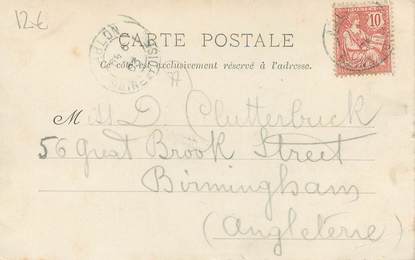 12€
CARTE POSTALE
Ce côté est exclusivement réservé à l'adresse.
10
Miss D. Clutterbuck
56 Great Brook Street
Birmingham
(Angleterre)